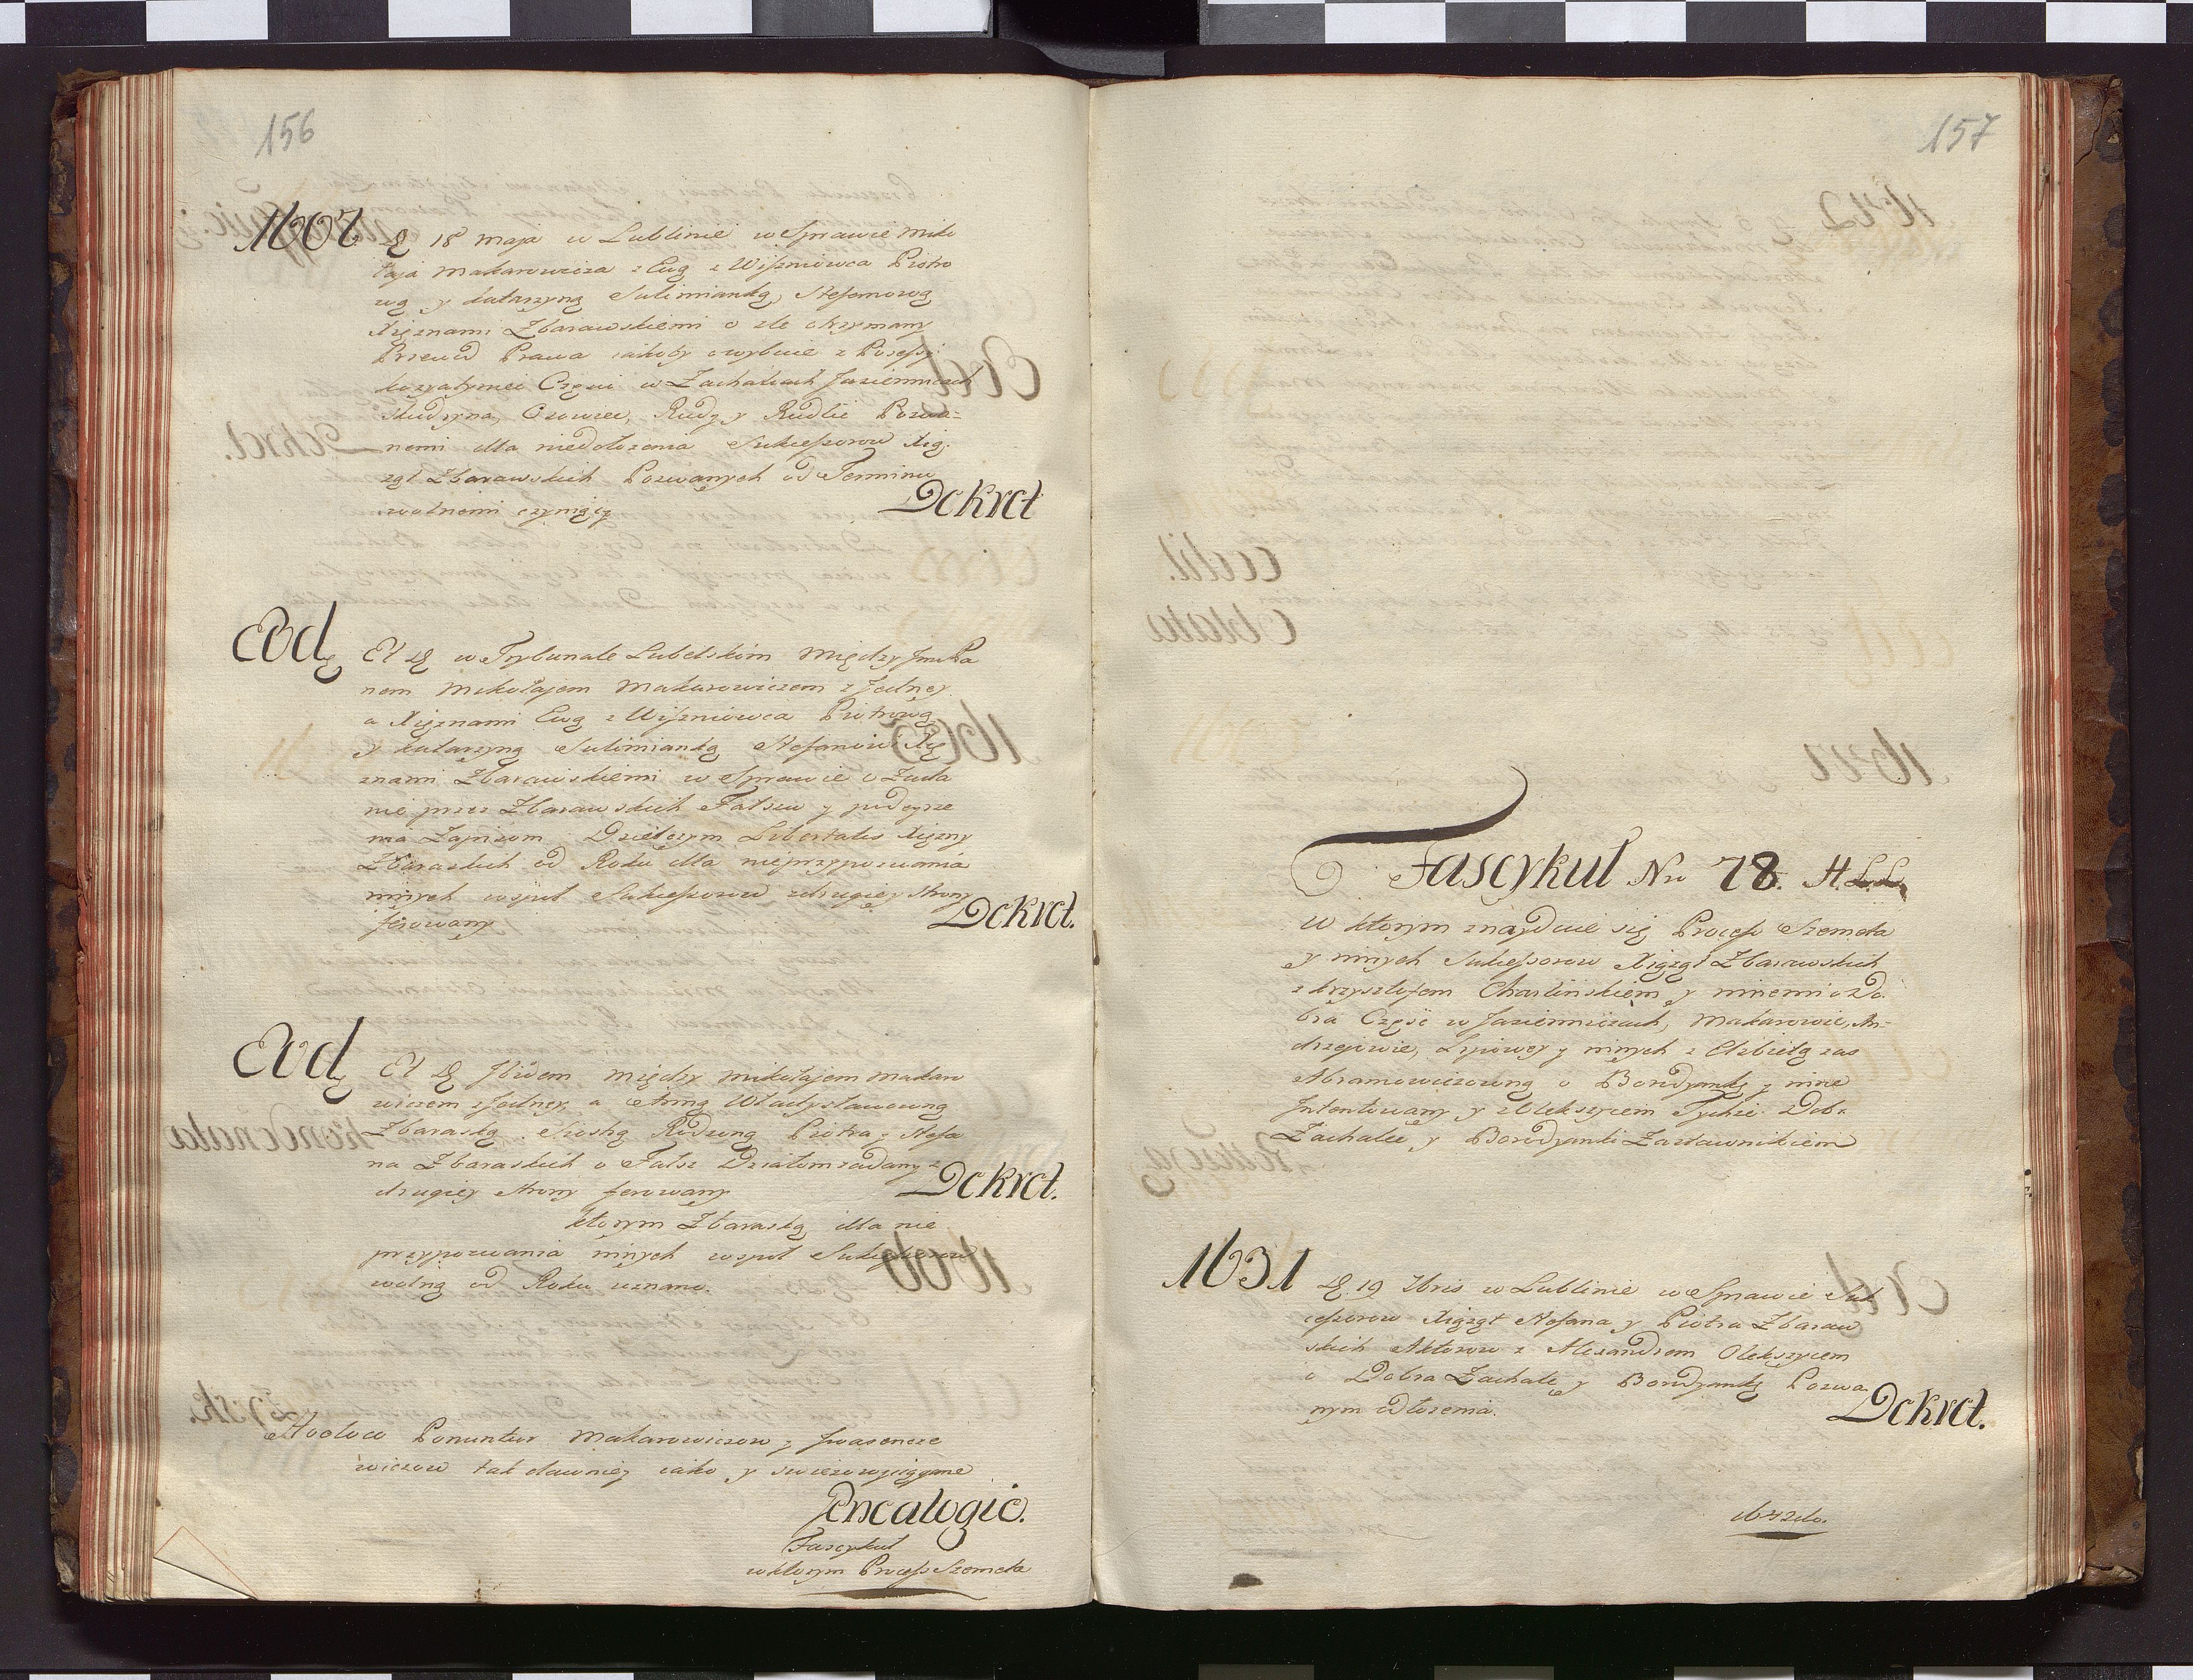 156
1607 D 18 Maja w Lublinie w Sprawie Miko
łaja Makarowicza z Ewą z Wiszniowca Piotro
wą y Katarzyną Sulimianką, Stefanową
Xiężnami Zbarawskiemi o źle otrzymany
Przewod Prawa jakoby o wybicie z Posessyi
Części w Zachalach Jasienniczach
Studzyna, Osowiec, Rudy y Rudlie Pozwa=
nemi dla niedołożenia Sukcessorow Xią:
ząt Zbarawskich Pozwanych od Terminu
wolnemi czyniący Dekret
Eod Et D w Trybunale Lubelskim między Jm Pa
nem Mikołajem Makarowiczem z Jedney
a Xiężnami Ewą z Wiszniowca Piotrową
y Katarzyną Sulimianką Stefanowi Xię
znami Zbarawskiemi w Sprawie o Zada
nie przez Zbarawskich Fałszu y podeyrze
nia Zapisom Dzielczym Libertatis Xiężny
Zbaraskich od Roku dla nieprzypozwania
innych wspoł Sukcessorow z drugiey Strony
ferowany Dekret.
Eod Et D Ibidem między Mikołajem Makaro
wiczem z Jedney, a Anną Władysławowną
Zbaraską Siostrą Rodzoną Piotra y Stefa
na Zbaraskich o Fałsz Działom zadany z
drugiey Strony ferowany Dekret.
ktorym Zbaraską dla nie
przypozwania innych wspoł Sukcessorow
wolną od Roku uznano.
Hocloco Ponuntur Makarowiczow y Iwasencze
wiczow tak dawniey iako y swieżo wyciągnione
Genealogie.
Fascykuł
w ktorym Process Szemeta
157
Fascykuł Nro 78. H.L.L.
W ktorym znayduie się Process Szemeta
y innych Sukcessorow Xiążąt Zbarawskich
z Krzysztofem Charlińskiem y innemi o Do.
bra Część w Jasienniczach, Makarowie, An=
drzejowie, Lipowey y innych z Elżbietą zas
Abramowiczowną o Borodzankę y inne
Intentowany y z Olekszycem Tychże Dobr
Zachalce y Borodzanki Zastawnikiem
1631 D 19 Xbris w Lublinie w Sprawie Suk
cessorow Xiążąt Stefana y Piotra Zbaraw
skich Aktorow z Alexandrem Olekszycem
o Dobra Zachale y Borodzankę Pozwa
nym odłożenia. Dekret.
1642do.